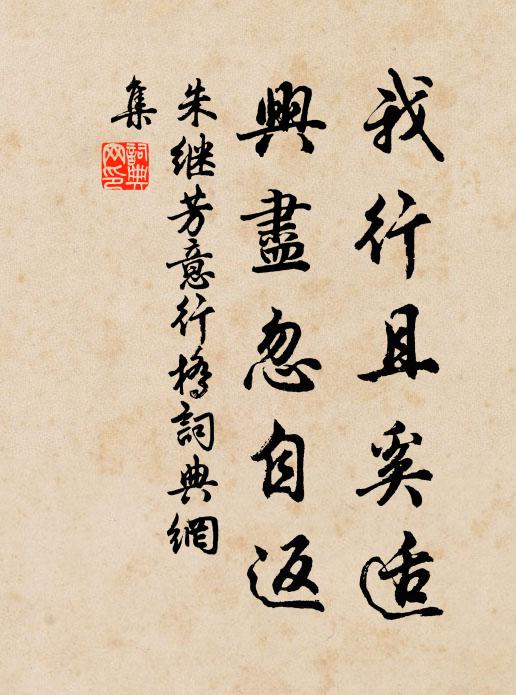 我行且奚适
興盡忽自返
朱継芳意行橋詞典網
集
詞典
网印